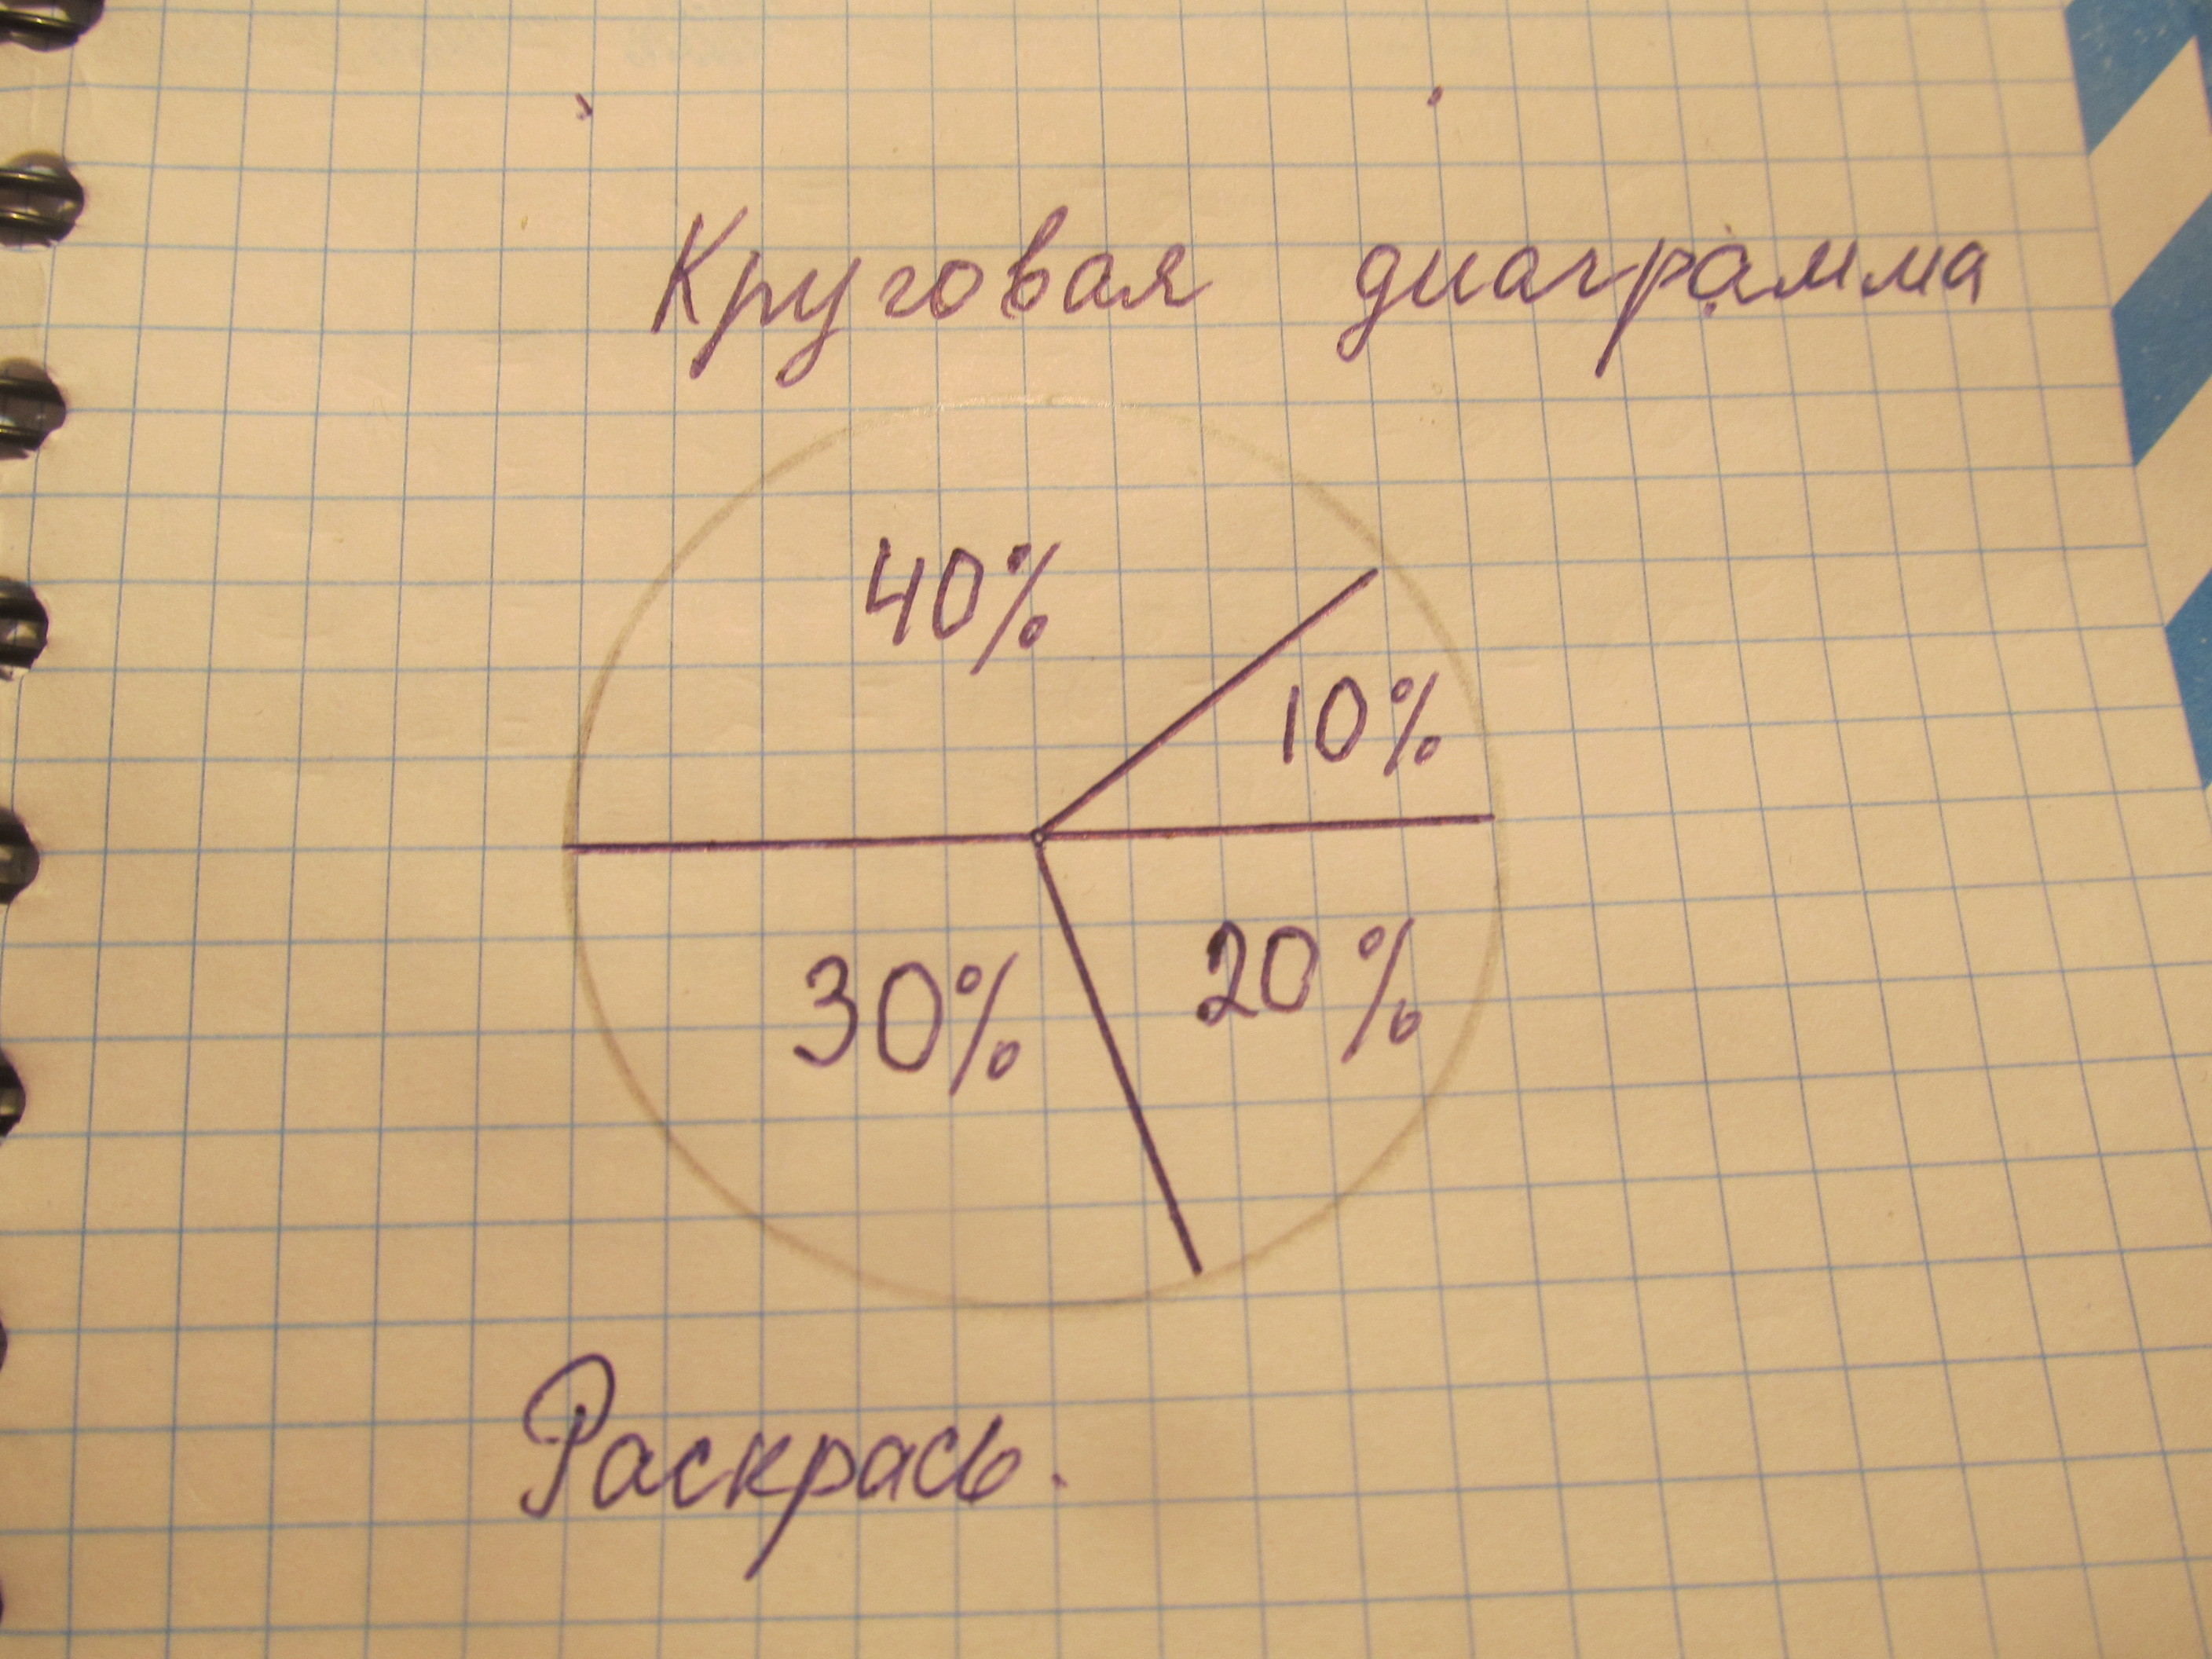 Круговая диаграмма
40%
10%
30% 20%
Раскрась.